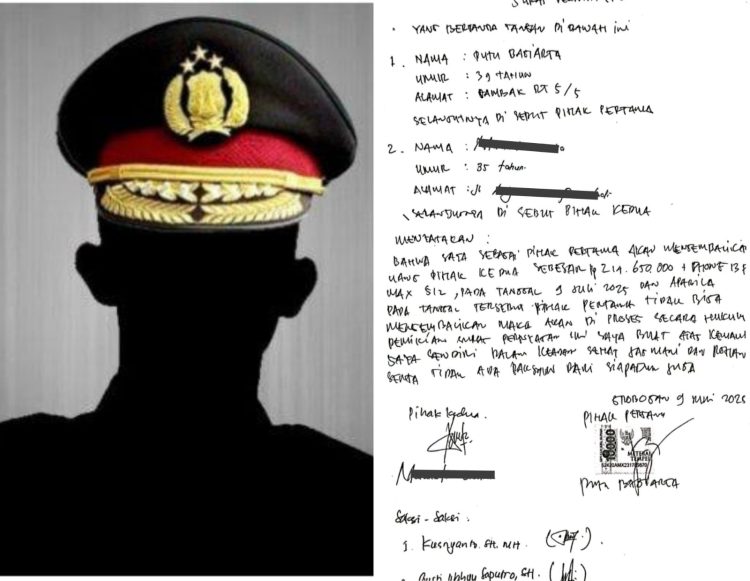 SURAT
• YANG BERTANDA TANGAN DI BAWAH ini
1. NAMA : PUTU BAGIARTA
UMUR : 39 tAHUN
ALAMAT : RT 5/5
SELANJUTNYA DI SEBUT PIHAK PERTAMA
2. NAMA :
UMUR : 35 tahun.
ALAMAT : Jl.
SELANJUTNYA DI SEBUT PIHAK KEDUA
MENYATAKAN :
BAHWA SAYA SEBAGAI PIHAK PERTAMA AKAN MENGEMBALIKAN
UANG PIHAK KEDUA SEBESAR Rp 214.650.000 + IPHONE
MAX 512, PADA TANGGAL 9 JULI 2025 DAN APABILA
PADA TANGGAL TERSEBUT PIHAK PERTAMA TIDAK BISA
MENGEMBALIKAN MAKA AKAN DI PROSES SECARA HUKUM
DEMIKIAN SURAT PERNYATAAN INI SAYA BUAT ATAS KEMAUAN
SAYA SENDIRI DALAM KEADAAN SEHAT JASMANI DAN ROHANI
SERTA TIDAK ADA PAKSAAN DARI SIAPAPUN JUGA
GROBOGAN 9 JUNI 2025
Pihak Kedua.
PIHAK PERTAMA
10000
METERAI
TEMPEL
PUTU BAGIARTA
Saksi - Saksi :
1. Kusnyanto. SH. MH.
Saputro, SH.